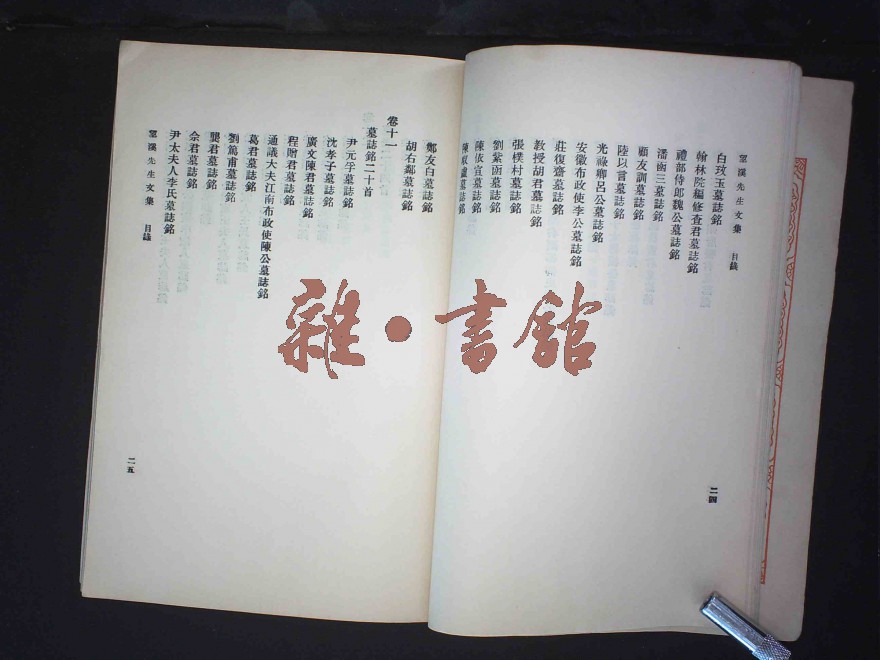 望溪先生文集 目錄
白玫玉墓誌銘
翰林院編修查君墓誌銘
禮部侍郎魏公墓誌銘
潘函三墓誌銘
顧友訓墓誌銘
陸以言墓誌銘
光祿卿呂公墓誌銘
安徽布政使李公墓誌銘
莊復齋墓誌銘
教授胡君墓誌銘
張樸村墓誌銘
劉紫函墓誌銘
陳依宣墓誌銘
陳馭虛墓誌銘
二四
鄭友白墓誌銘
胡右鄰墓誌銘
卷十一
墓誌銘二十首
尹元孚墓誌銘
沈孝子墓誌銘
廣文陳君墓誌銘
程贈君墓誌銘
通議大夫江南布政使陳公墓誌銘
葛君墓誌銘
劉篤甫墓誌銘
龔君墓誌銘
佘君墓誌銘
尹太夫人李氏墓誌銘
望溪先生文集 目錄
二五
雜·書館